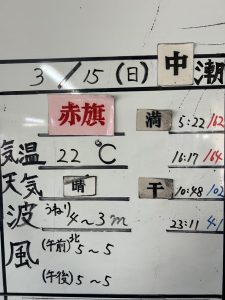 3/15(日) 中潮
赤旗 満 5:22/162
気温 22℃ 16:17/164
天気 晴 干 10:48/102
波 うねり 4~3m 23:11/41
風 (午前) 北 5~5
(午後) 5~5